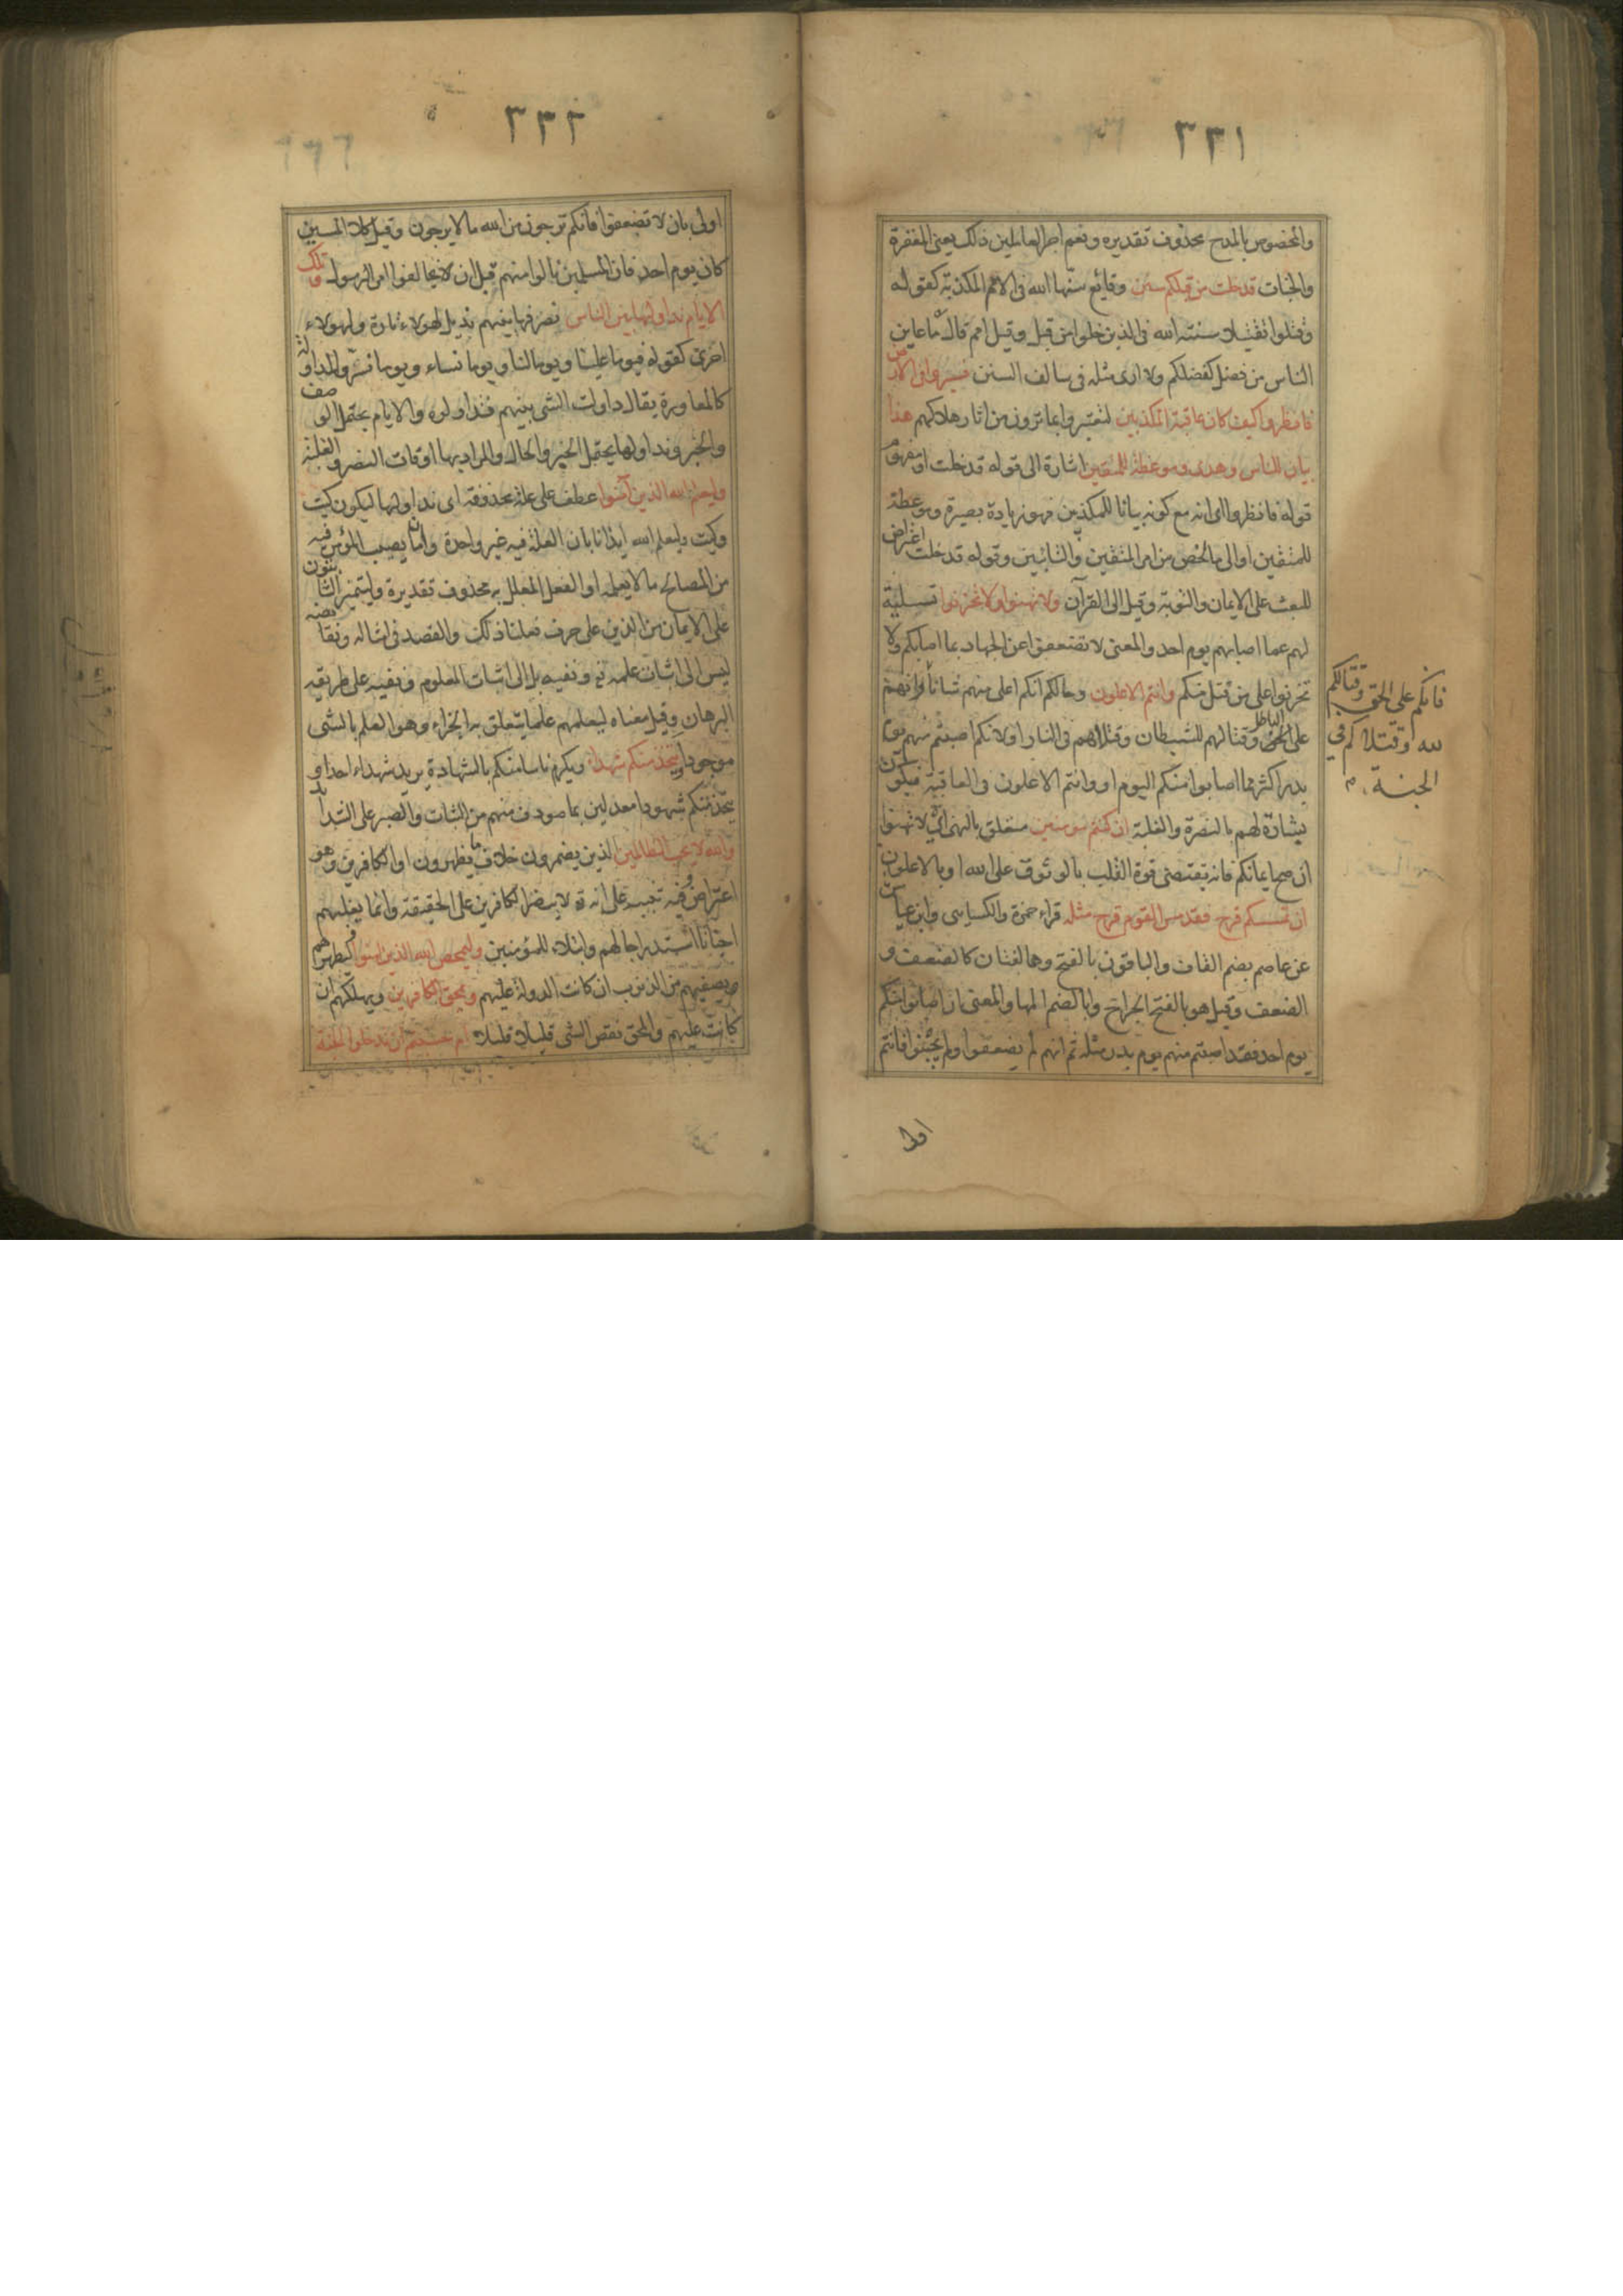 ٣٣١
والمخصوص بالمدح محذوف تقديره ونعم اجر العاملين ذلك يعنى المغفرة
والجنات قد خلت من قبلكم سنن وقايع سنها الله فى الامم المكذبة كقوله
وقتلوا تقتيلا سنة الله فى الذين خلوا من قبل وقيل امم قال ما عاين
الناس من فضل كفضلكم ولا ارى مثله فى سالف السنن فسيروا فى الارض
فانظروا كيف كان عاقبة المكذبين لتعتبروا بما ترون من اثار هلاكهم هذا
بيان للناس وهدى وموعظة للمتقين اشارة الى قوله قد خلت او مفهوم
قوله فانظروا اى انه مع كونه بيانا للمكذبين فهو زيادة بصيرة وموعظة
للمتقين او الى ما لخص من امر المتقين والتائبين وقوله قد خلت اعتراض
للبعث على الايمان والتوبة وقيل الى القرآن ولا تهنوا ولا تحزنوا تسلية
لهم عما اصابهم يوم احد والمعنى لا تضعفوا عن الجهاد بما اصابكم ولا
تحزنوا على من قتل منكم وانتم الاعلون وحالكم انكم اعلى منهم شانا وانهم
على الباطل وقتالهم للشيطان وقتلاهم فى النار او لانكم اصبتم منهم يوم
بدر اكثر مما اصابوا منكم اليوم او وانتم الاعلون فى العاقبة فيكون
بشارة لهم بالنصرة والغلبة ان كنتم مومنين متعلق بالنهى اى لا تهنوا
ان صح ايمانكم فانه يقتضى قوة القلب بالوثوق على الله او بالاعلون
ان تمسسكم قرح فقد مس القوم قرح مثله قراء حمزة والكسايى وابن عياش
عن عاصم بضم القاف والباقون بالفتح وهما لغتان كالضعف و
الضعف وقيل هو بالفتح الجراح وبالضم المها والمعنى ان اصابوا منكم
يوم احد فقد اصبتم منهم يوم بدر مثله ثم انهم لم يضعفوا ولم يجبنوا فانتم
فانكم على الحق وقتالكم
لله وقتلاكم فى
الجنة
اولى
٣٣٢
اولى بان لا تضعفوا فانكم ترجون من الله ما لا يرجون وقيل كلا المسين
كان يوم احد فان المسلمين نالوا منهم قبل ان يخالفوا امر الرسول وتلك
الايام نداولها بين الناس نصرفها بينهم نديل لهولاء تارة ولهولاء
اخرى كقوله فيوما علينا ويوما لنا ويوما نساء ويوما نسر والمداولة
كالمعاورة يقال داولت الشى بينهم فتداولوه والايام يحتمل الوصف
والخبر ونداولها يحتمل الخبر والحال والمراد بها اوقات النصر والغلبة
وليعلم الله الذين آمنوا عطف على علة محذوفة اى نداولها ليكون كيت
وكيت وليعلم الله ايذانا بان العلة فيه غير واحدة وان ما يصيب المؤمن فيه
من المصالح ما لا يعلم او الفعل المعلل به محذوف تقديره وليتميز الثابتون
على الايمان من الذين على حرف فعلنا ذلك والقصد فى امثاله ونقائضه
ليس الى اثبات علمه تع ونفيه بل الى اثبات المعلوم ونفيه على طريقة
البرهان وقيل معناه ليعلمهم علما يتعلق به الجزاء وهو العلم بالشى
موجودا ويتخذ منكم شهداء ويكرم ناسا منكم بالشهادة يريد شهداء احد او
يتخذ منكم شهودا معدلين بما صودف منهم من الثبات والصبر على الشدائد
والله لا يحب الظالمين الذين يضمرون خلاف ما يظهرون او الكافرين وهو
اعتراض وفيه تنبيه على انه تع لا ينصر الكافرين على الحقيقة وانما يغلبهم
احيانا استدراجا لهم وابتلاء للمؤمنين وليمحص الله الذين آمنوا ليطهرهم
ويصفيهم من الذنوب ان كانت الدولة عليهم ويمحق الكافرين ويهلكهم ان
كانت عليهم والمحق نقص الشى قليلا قليلا ام حسبتم ان تدخلوا الجنة